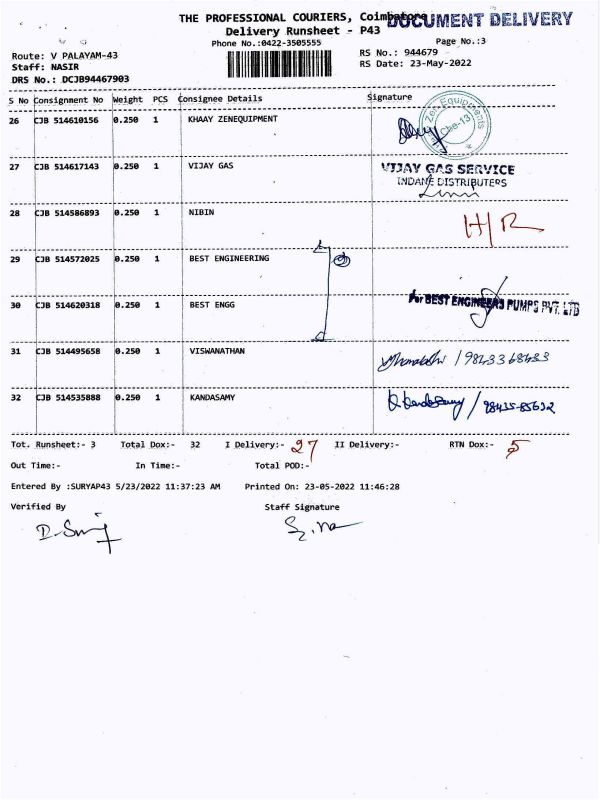 THE PROFESSIONAL COURIERS, Coimbatore
DOCUMENT DELIVERY
Delivery Runsheet - P43
Phone No.:0422-3505555
Page No.:3
Route: V PALAYAM-43
RS No.: 944679
Staff: NASIR
RS Date: 23-May-2022
DRS No.: DCJB94467903
S No Consignment No Weight PCS Consignee Details Signature
26 CJB 514610156 0.250 1 KHAAY ZENEQUIPMENT
Zen Equipments
Che-13
27 CJB 514617143 0.250 1 VIJAY GAS
VIJAY GAS SERVICE
INDANE DISTRIBUTERS
28 CJB 514586893 0.250 1 NIBIN H/R
29 CJB 514572025 0.250 1 BEST ENGINEERING
30 CJB 514620318 0.250 1 BEST ENGG
For BEST ENGINEERS PUMPS PVT. LTD
31 CJB 514495658 0.250 1 VISWANATHAN
32 CJB 514535888 0.250 1 KANDASAMY
Tot. Runsheet:- 3 Total Dox:- 32 I Delivery:- 27 II Delivery:- RTN Dox:- 5
Out Time:- In Time:- Total POD:-
Entered By :SURYAP43 5/23/2022 11:37:23 AM Printed On: 23-05-2022 11:46:28
Verified By Staff Signature